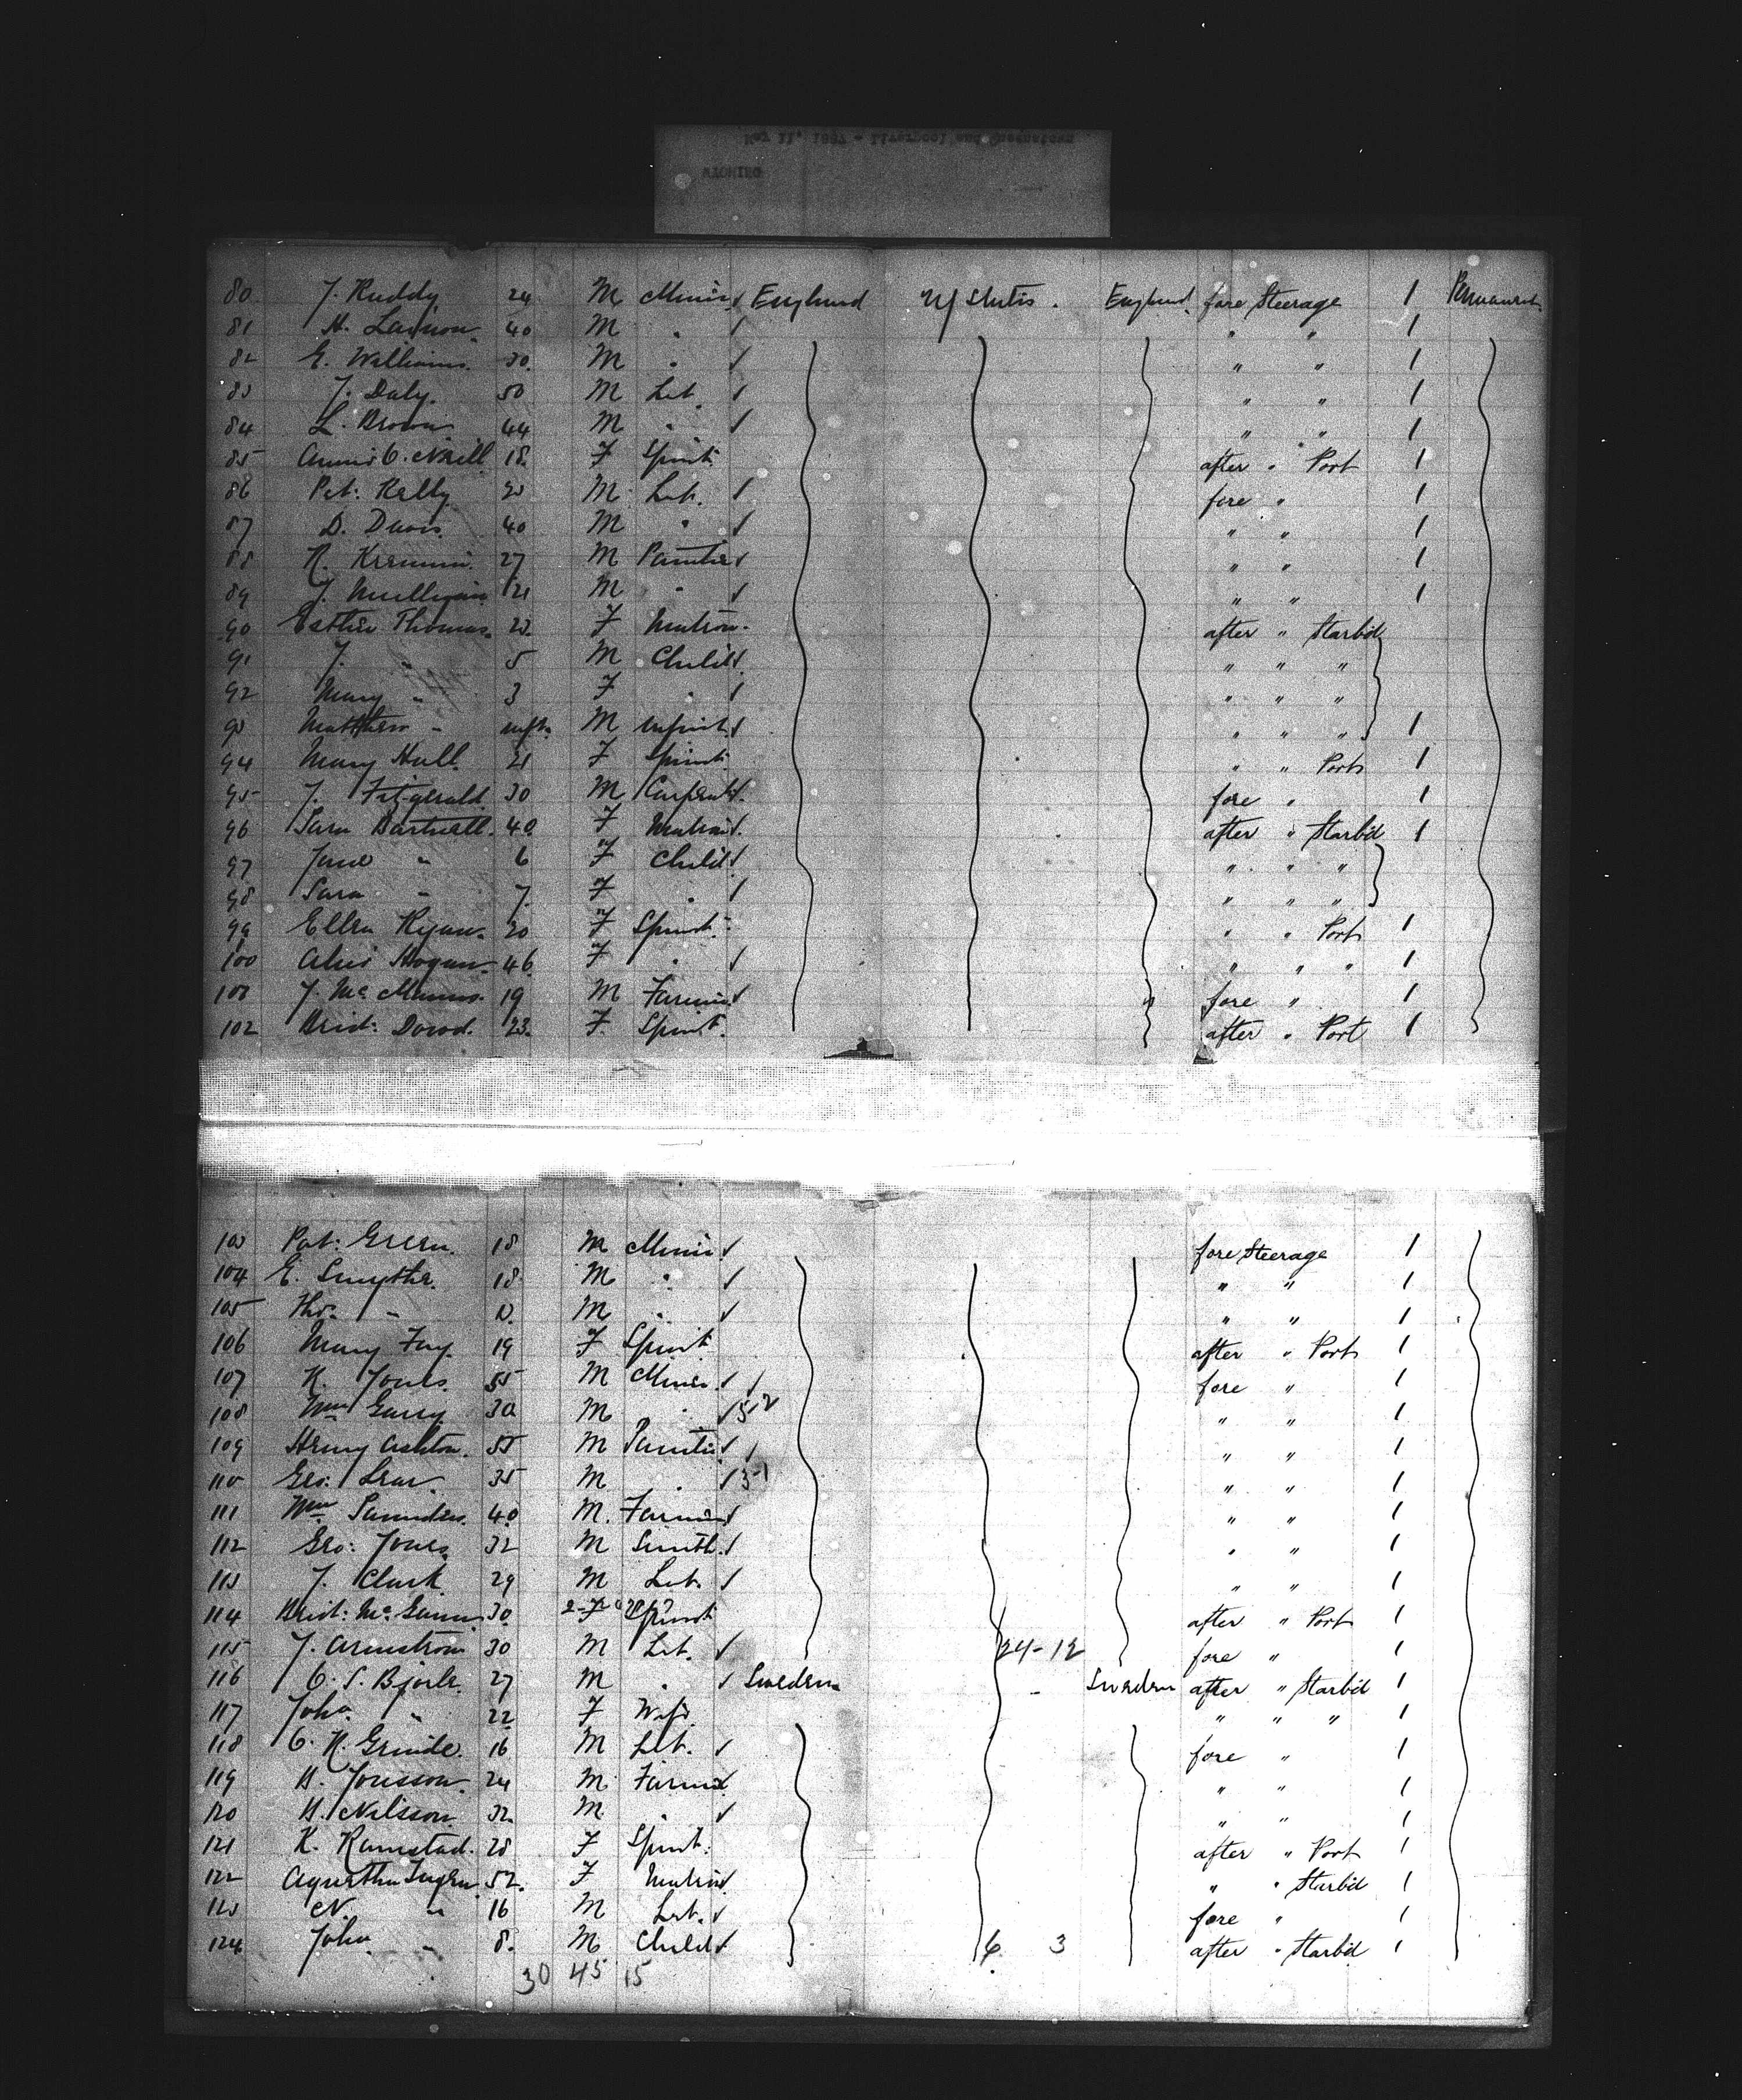 May 11, 1887 - Liverpool and Queenstown
WYOMING
80 J. Ruddy 24 M Miner England U/States. England fore Steerage 1 Permanent
81 H. 40 M " " " 1
82 E. Williams 30 M " " " 1
83 J. Daly. 50 M Lab. " " 1
84 L. Brown 44 M " " " 1
85 Annie O'Neill 18 F Spinst. after " Port 1
86 Pat: Kelly M Lab. fore " 1
87 D. Davis. 40 M " " " 1
88 27 M Painter " " 1
89 J. Mulligan 21 M " " " 1
90 Esther Thomas. F Matron. after " Starbd
91 J. " 5 M Child " " "
92 Mary " 3 F " " " "
93 Matthew " inft. M Infant " " " 1
94 Mary Hall. 21 F Spinst. " " Port 1
95 J. Fitzgerald. 30 M Carpent. fore " 1
96 Sara Bartnell. 40 F Matron. after " Starbd 1
97 Jane " 6 F Child " " "
98 Sara " 7. F " " " "
99 Ellen Ryan. 20 F Spinst. " " Port 1
100 Alice Hogan 46 F " " " " 1
101 J. McManus. 19 M Farmer fore " 1
102 Brid: Dowd. 23. F Spinst. after " Port 1
103 Pat: Green. 18 M Miner fore Steerage 1
104 E. Smythe. 18 M " " " 1
105 Tho. " M " " " 1
106 Mary Fay. 19 F Spinst after " Port 1
107 K. Jones. 55 M Miner. fore " 1
108 Wm Garry 30 M " 5-2 " " 1
109 Henry Ashton. 55 M Painter " " 1
110 Geo: Lear. 35 M " 3-1 " " 1
111 Wm Saunders. 40 M. Farmer " " 1
112 Geo: Jones. 32 M Smith. " " 1
113 J. Clark. 29 M Lab. " " 1
114 Brid: McGann 30 F Spinst after " Port 1
115 J. Armstrong 30 M Lab. 24-12 fore " 1
116 O. S. Bjorle. 27 M " Sweden - Sweden after " Starbd 1
117 Joha. " 22 F Wife " " " 1
118 O. N. Grinde. 16 M Lab. fore " 1
119 H. Jonsson. 24 M Farmer " " 1
120 H. Nilsson. 32 M " " " 1
121 K. Ramstad. 28 F Spinst. after " Port 1
122 Agnetha 52. F Matron " " Starbd 1
123 N. " 16 M Lab. fore " 1
124 Joha " 8. M Child 6 3 after " Starbd 1
30 45 15